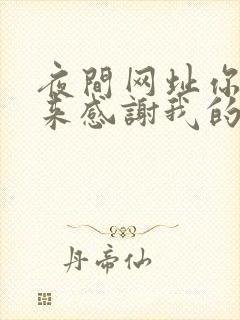 夜間网址你
来感謝我的
丹帝仙